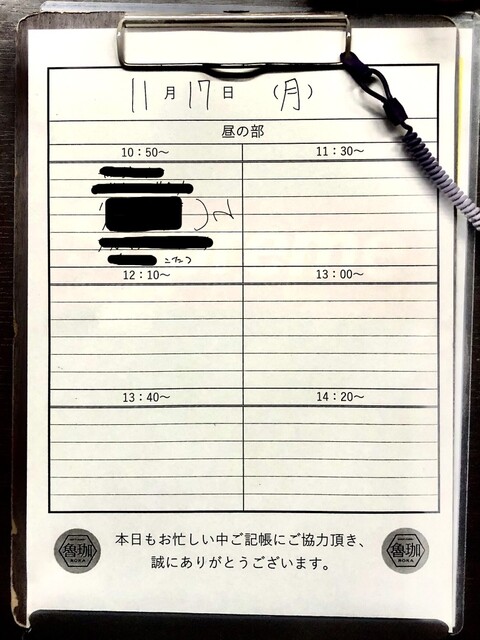 11月17日 (月)
昼の部
10：50～ 11：30～
2
12：10～ 13：00～
13：40～ 14：20～
本日もお忙しい中ご記帳にご協力頂き、
誠にありがとうございます。
魯珈 ROKA 魯珈 ROKA